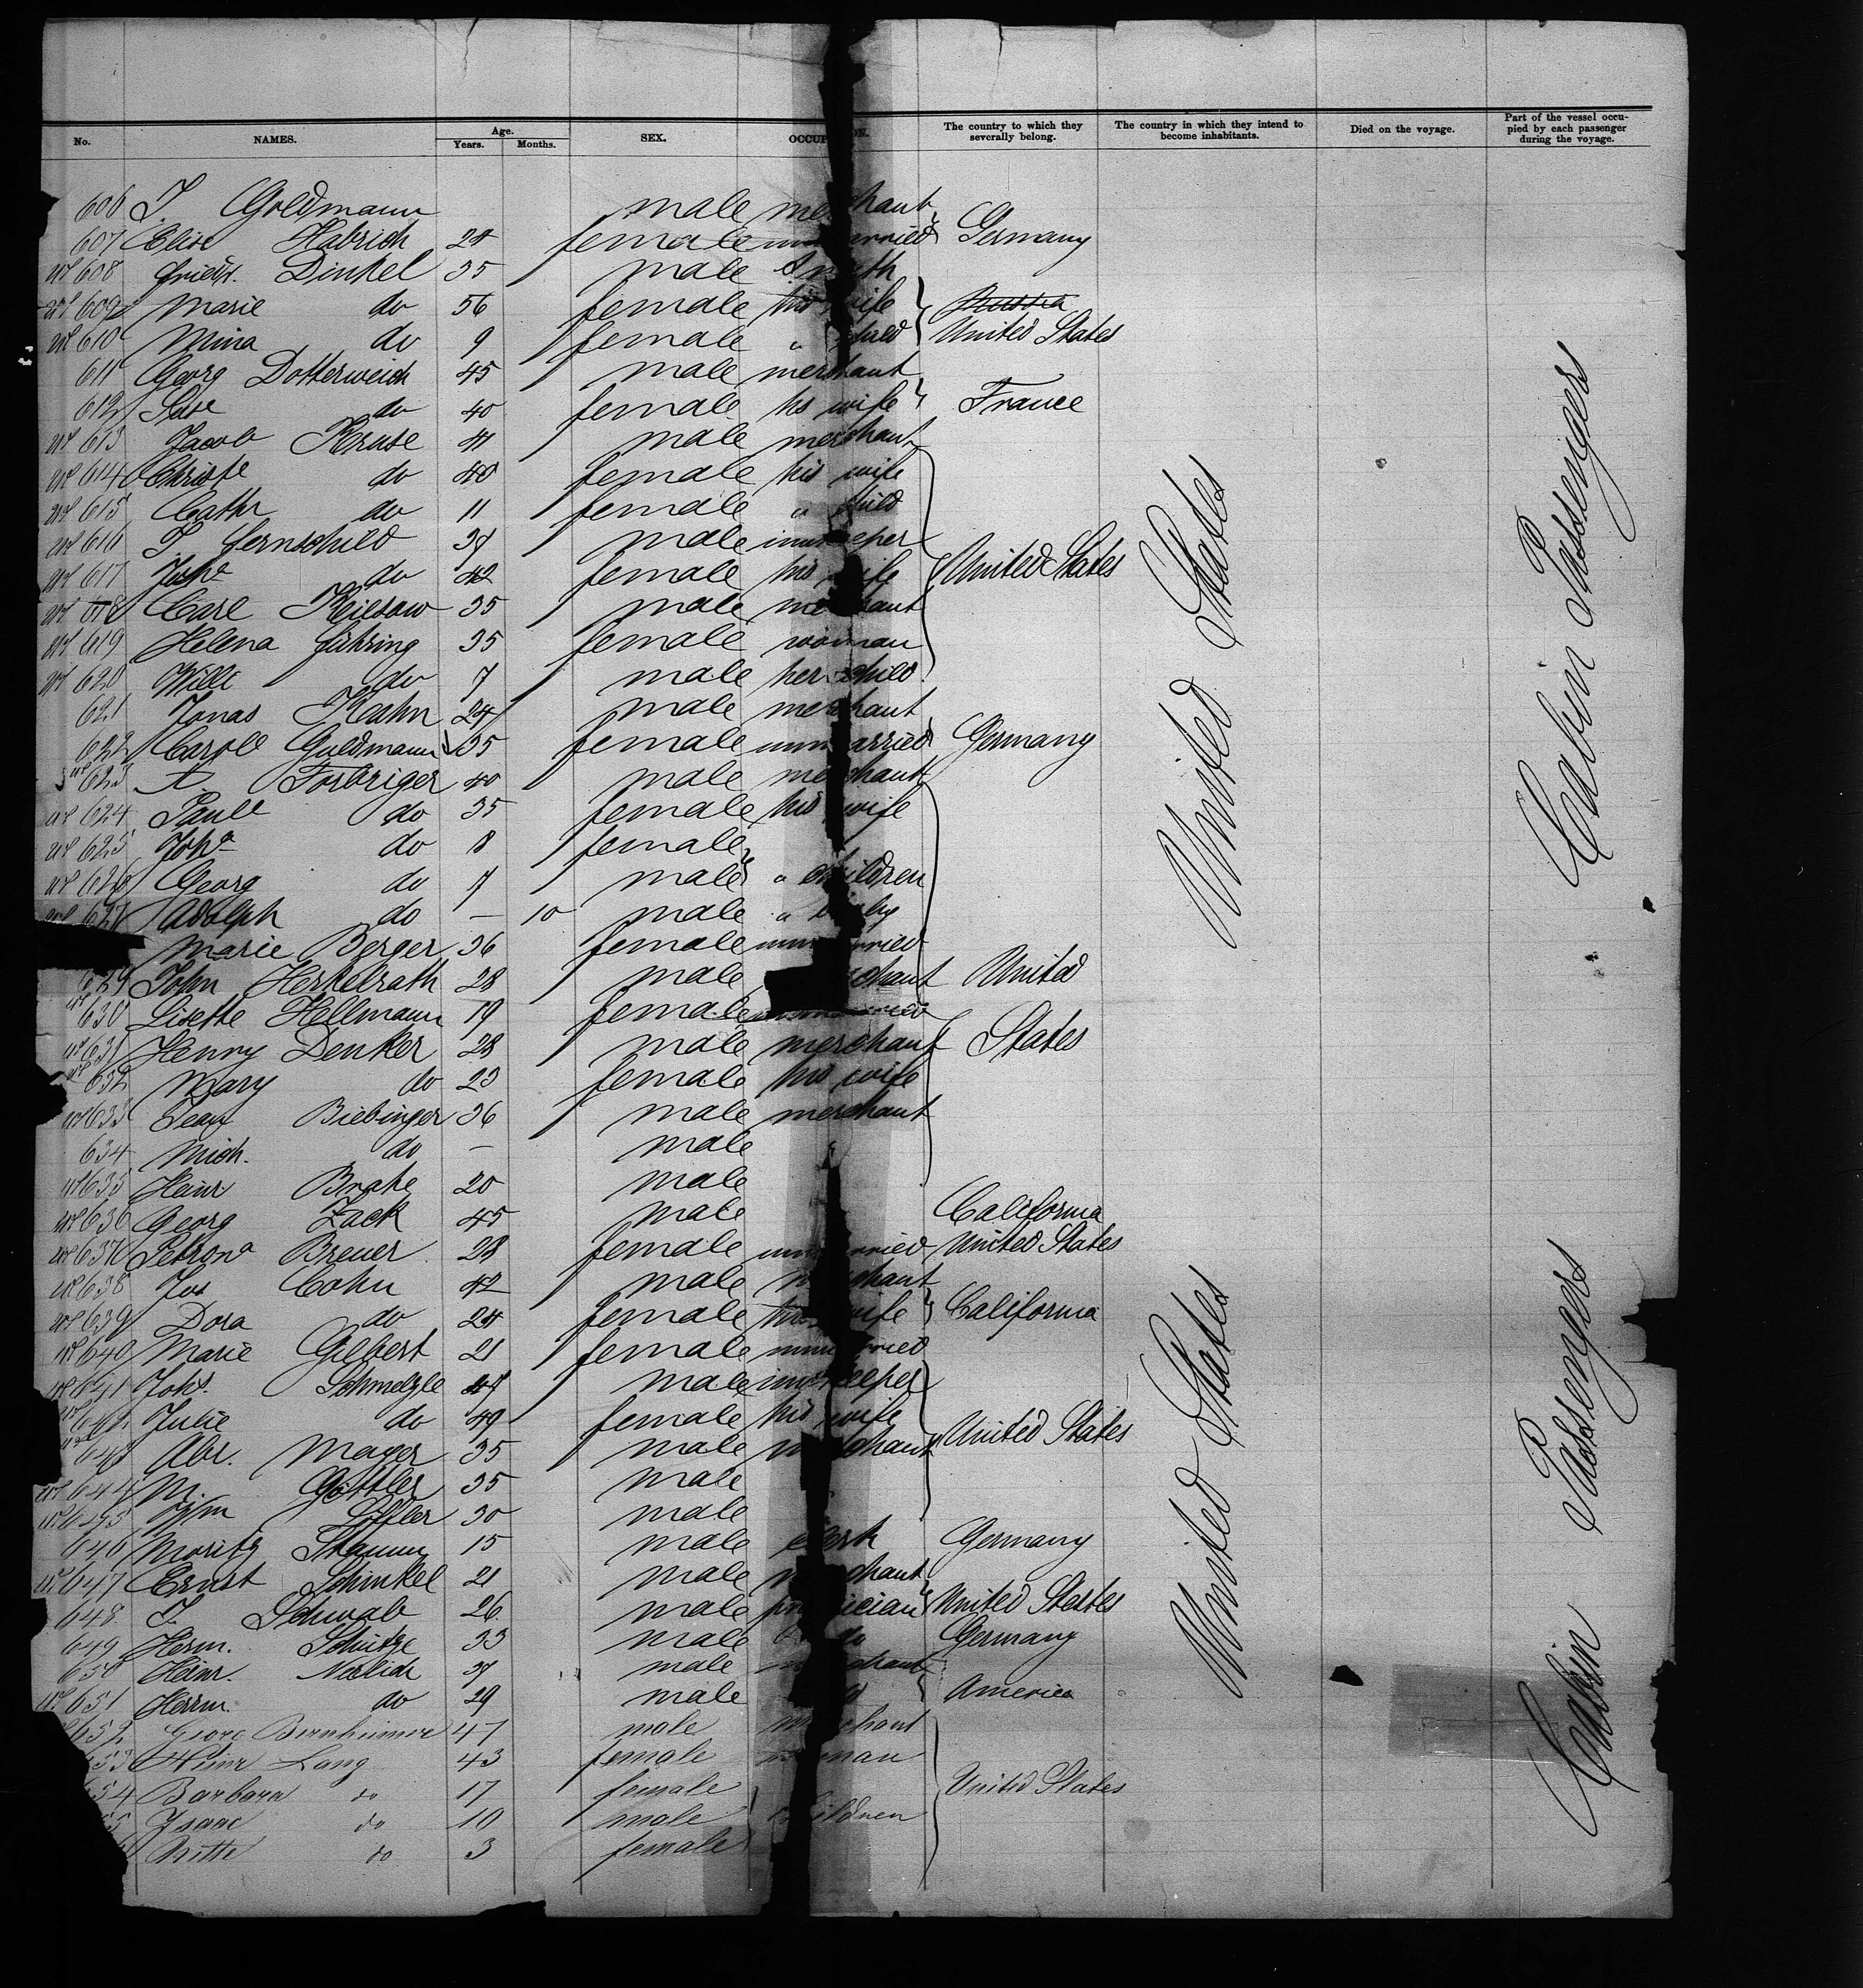 No. NAMES. Age. Years. Months. SEX. OCCUPATION. The country to which they severally belong. The country in which they intend to become inhabitants. Died on the voyage. Part of the vessel occupied by each passenger during the voyage.
606 I. Goldmann male merchant
607 Elise Habrich 24 female unmarried Germany
608 Friedr. Dinkel 35 male Smith
609 Marie do 56 female his wife
610 Mina do 9 female " child United States
611 Georg Dotterweich 45 male merchant
612 do 40 female his wife France
613 Jacob Kruse 41 male merchant
614 Christe do 40 female his wife
615 Cathr do 11 female " child
616 Fernschild male innkeeper
617 do 42 female his wife United States
618 Carl 35 male merchant
619 Helena Führing 35 female woman
620 Willi do 7 male her child
621 Jonas Hahn 24 male merchant
622 Caroll Guldmann 35 female unmarried Germany
623 A. Forbriger 40 male merchant
624 Paull do 35 female his wife
625 Joha do 8 female
626 Georg do 7 male " children
627 Adolph do — 10 male " baby
Marie Berger 36 female unmarried
629 John Herkelrath 28 male merchant United
630 Lisette Hellmann 19 female unmarried
631 Henry Denker 28 male merchant States
632 Mary do 23 female his wife
633 Biebinger 36 male merchant
634 Mich. do — male
635 Heinr Brake 20 male
636 Georg Zack 45 male California
637 Petrona Breuer 28 female unmarried United States
638 Jos Cohn 42 male merchant
639 Dora do 24 female his wife California
640 Marie Gilbert 21 female unmarried
641 Johs. Schmelzle male innkeeper
642 Julie do 49 female his wife
643 Abr. Mayer 35 male merchant United States
644 M. Göttler 35 male
645 Wm Löffler 30 male
646 Moritz Stamm 15 male clerk Germany
647 Ernst Schinkel 21 male merchant
648 I. Schwab 26 male physician United States
649 Herm. Schütze 33 male do Germany
650 Heinr. Nerlich male merchant
651 Herrm. do 29 male do America
652 Georg Bernheimer 47 male merchant
653 Heinr Lang 43 female woman
654 Barbara do 17 female United States
Isaac do 10 male children
do 3 female
United States
United States
Cabin Passengers
Cabin Passengers